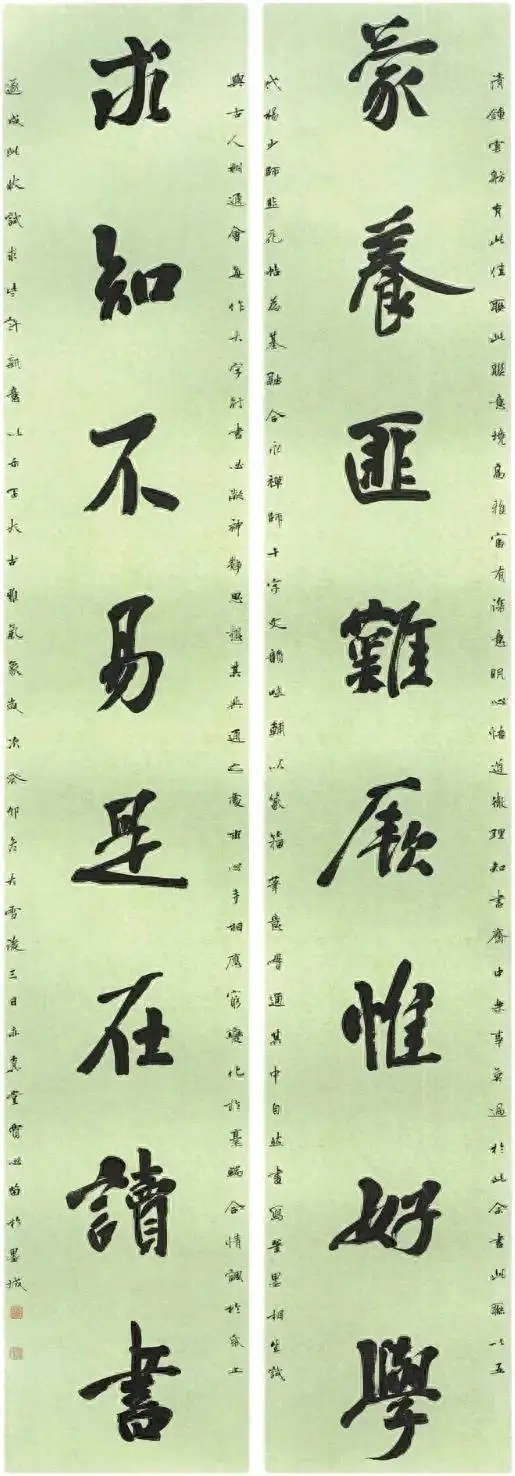 清鍾雲舫有此佳聯此聯意境高雅富有深意明心悟道徹理知書齋中無事莫過於此余書此聯以五
蒙養匪難厥惟好學
代楊少師韭花帖為基融合永禪師千字文韻味輔以篆籀筆意通其中自然書寫筆墨相生試
與古人相通會每作大字行書必凝神靜思其與通之處心手相應窮變化於毫端合情調於紙上
求知不易是在讀書
遂成此狀試求些許新意以大古雅氣象歲次癸卯冬大雪後三日亦真堂於墨城